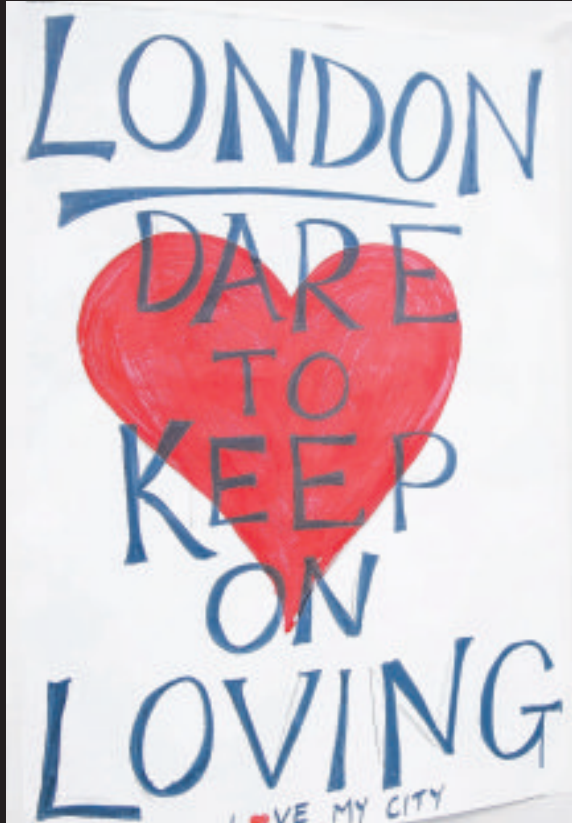 LONDON
DARE
TO
KEEP
ON
LOVING
L♥VE MY CITY